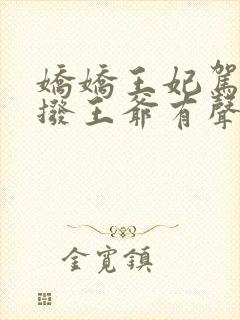 嬌嬌王妃駕
撥王爺有聲
金寬鎮